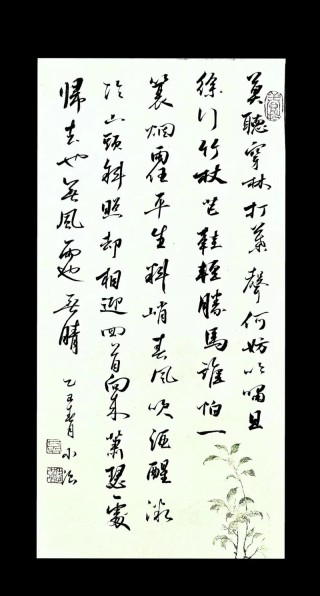 莫聽穿林打葉聲何妨吟嘯且
徐行竹杖芒鞋輕勝馬誰怕一
蓑烟雨任平生料峭春風吹酒醒微
冷山頭斜照却相迎回首向来蕭瑟處
歸去也無風雨也無晴